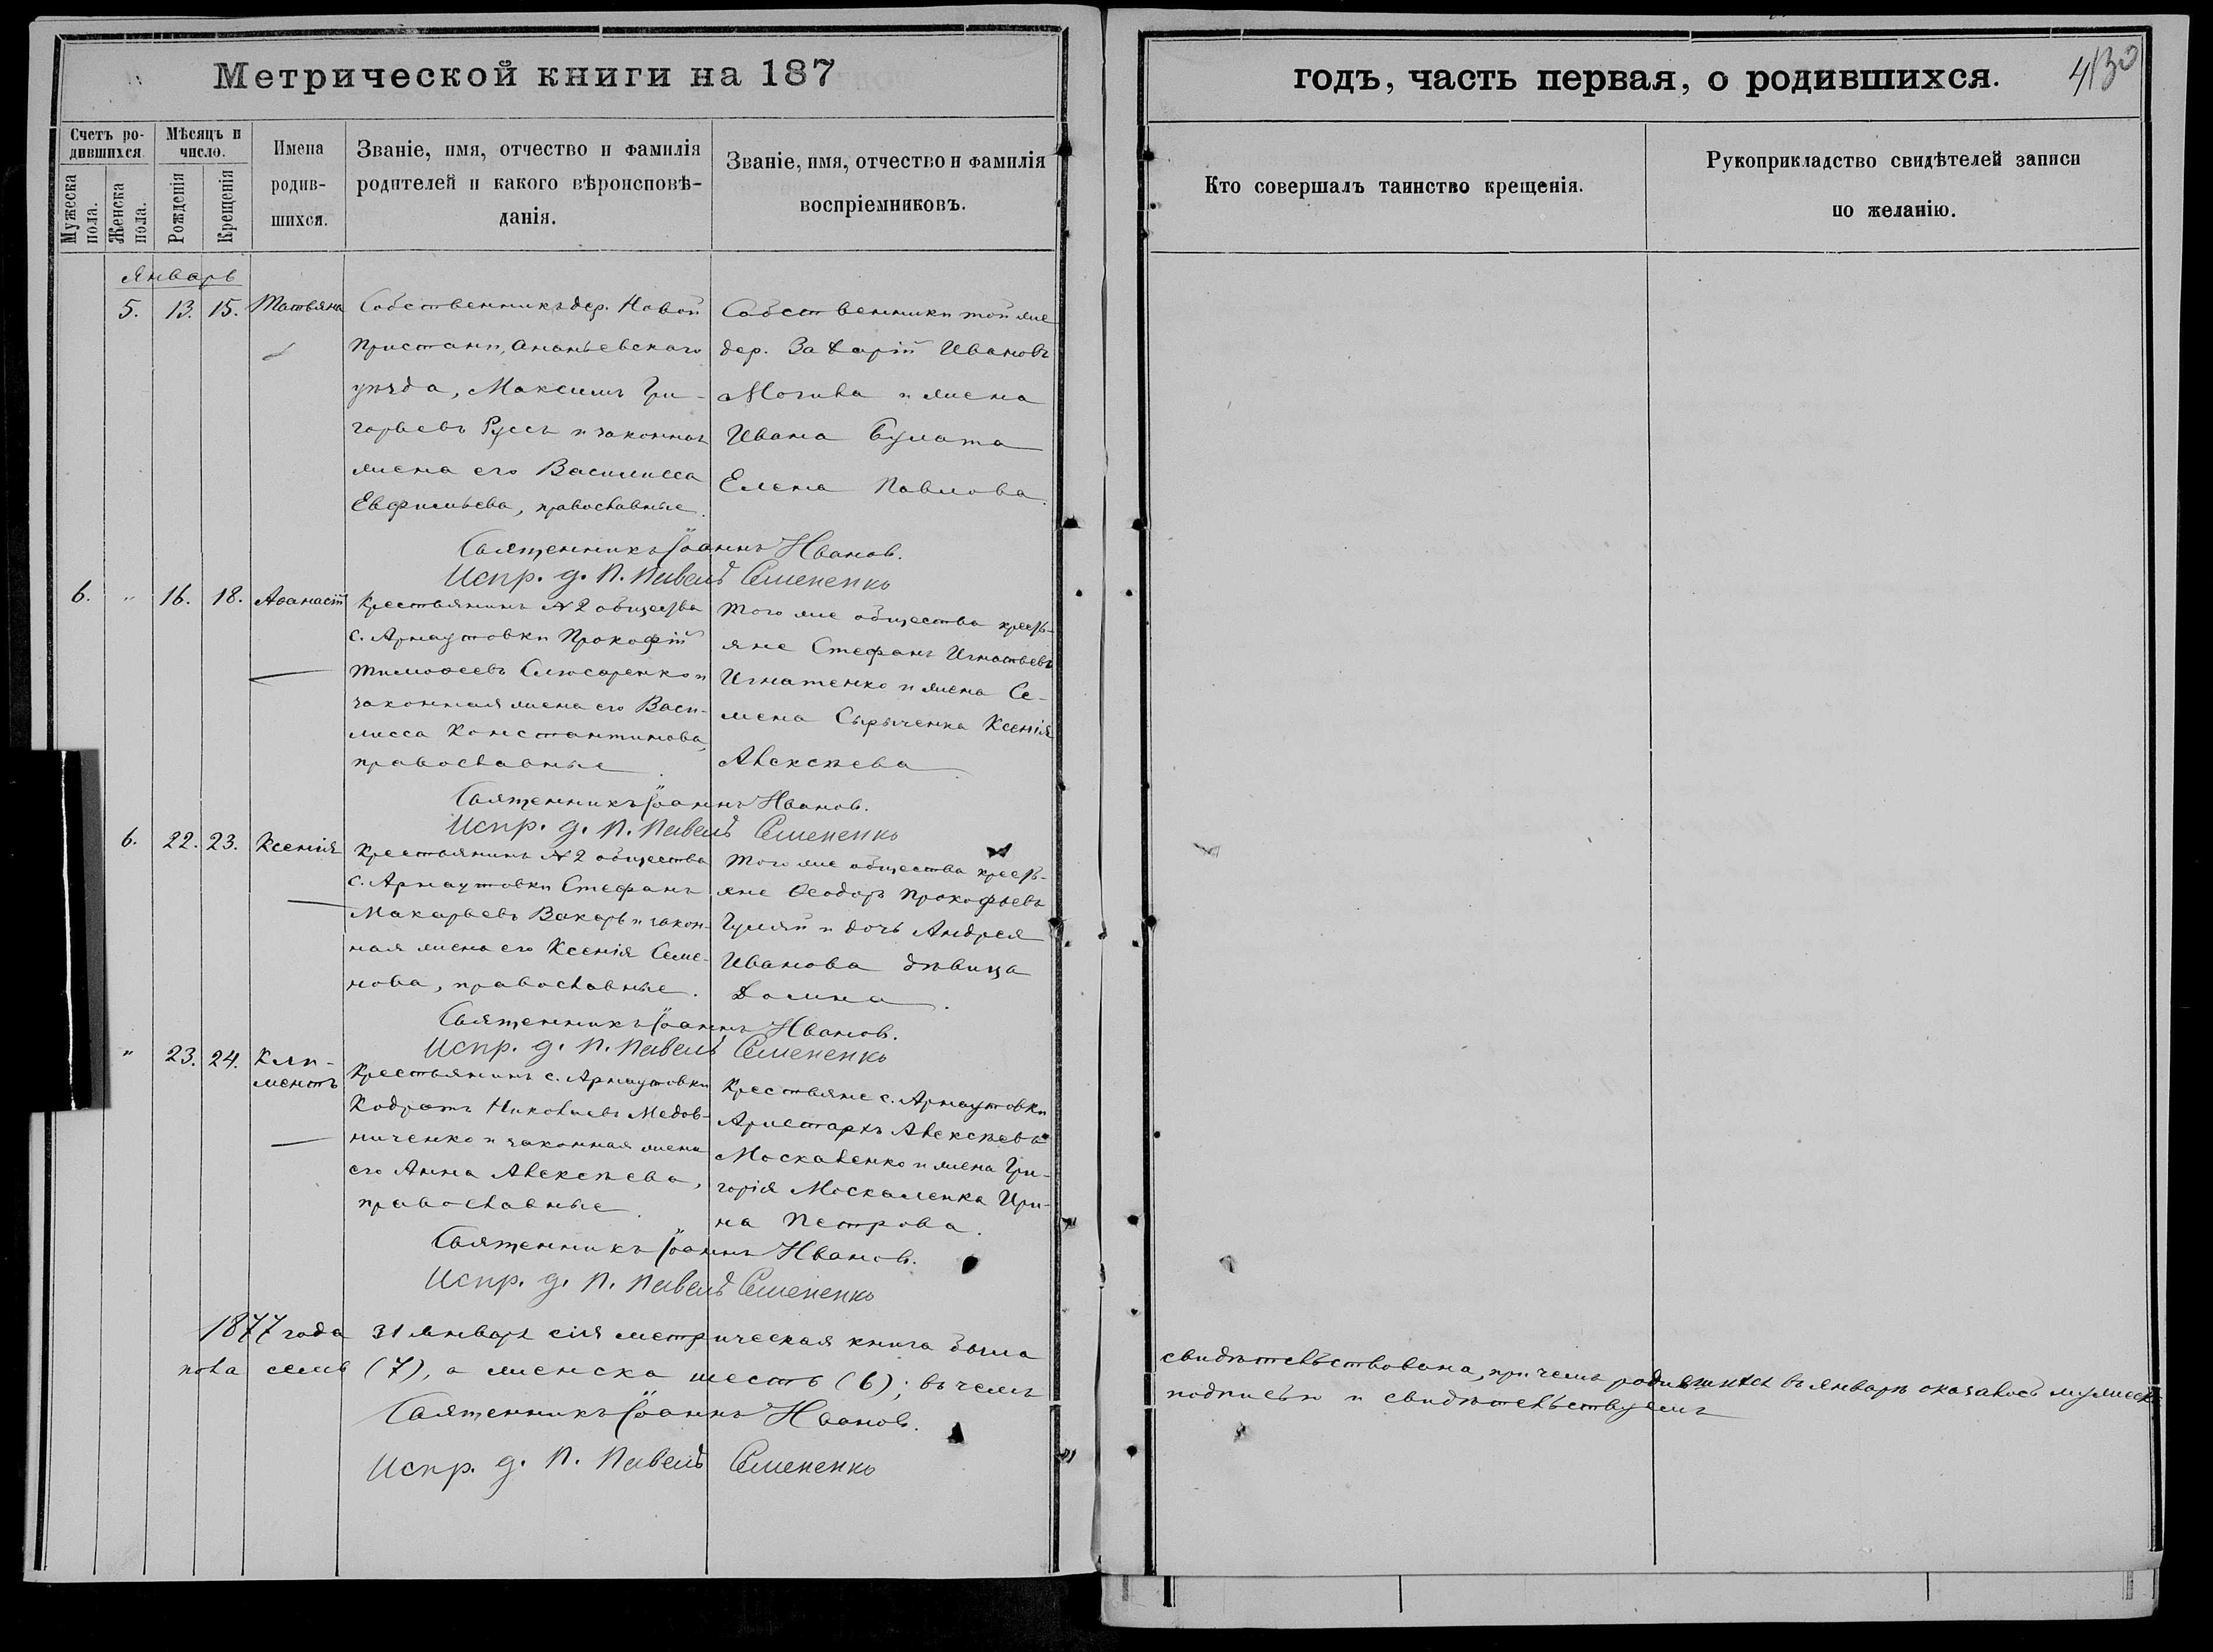 Метрической книги на 187
годъ, часть первая, о родившихся.
430
Счетъ ро-
дившихся.
Мѣсяцъ и
число.
Мужеска
пола.
Женска
пола.
Рожденія
Крещенія
Имена
родив-
шихся.
Званіе, имя, отчество и фамилія
родителей и какого вѣроисповѣ-
данія.
Званіе, имя, отчество и фамилія
воспріемниковъ.
Кто совершалъ таинство крещенія.
Рукоприкладство свидѣтелей записи
по желанію.
Январь
5. 13. 15. Татьяна
Собственникъ дер. Новой
Пристани, Ананьевскаго
уѣзда, Максимъ Гри-
горьевъ Руссъ и законная
жена его Василисса
Евфимьева, православные.
Собственники той же
дер. Захарій Ивановъ
Могива и жена
Ивана Булата
Елена Павлова.
Священникъ Іоаннъ Ивановъ.
Испр. д. п. Павелъ Семененко
6. " 16. 18. Аѳанасій
Крестьянинъ №2 общества
с. Арнаутовки Прокофій
Тимоѳеевъ Слюсаренко и
законная жена его Васи-
лисса Константинова,
православные.
Того же общества кресть-
яне Стефанъ Игнатьевъ
Игнатенко и жена Се-
мена Сырыченка Ксенія
Алексѣева.
Священникъ Іоаннъ Ивановъ.
Испр. д. п. Павелъ Семененко
6. 22. 23. Ксенія
Крестьянинъ №2 общества
с. Арнаутовки Стефанъ
Макарьевъ Вакарь и закон-
ная жена его Ксенія Семе-
нова, православные.
Того же общества кресть-
яне Ѳеодоръ Прокофьевъ
Гуляй и дочь Андрея
Иванова дѣвица
Домна.
Священникъ Іоаннъ Ивановъ.
Испр. д. п. Павелъ Семененко
" 23. 24. Кли-
ментъ
Крестьянинъ с. Арнаутовки
Кодратъ Николаевъ Медов-
ниченко и законная жена
его Анна Алексѣева,
православные.
Крестьяне с. Арнаутовки
Аристархъ Алексѣевъ
Москаленко и жена Гри-
горія Москаленка Ири-
на Петрова.
Священникъ Іоаннъ Ивановъ.
Испр. д. п. Павелъ Семененко
1877 года 31 января сія метрическая книга была
свидѣтельствована, при чемъ родившихся въ январѣ оказалось мужеска
пола семь (7), а женска шесть (6); въ чемъ
подписью и свидѣтельствуемъ
Священникъ Іоаннъ Ивановъ.
Испр. д. п. Павелъ Семененко